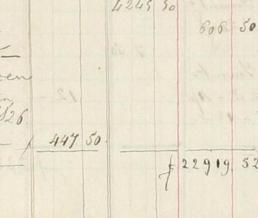 4245 50
606 50
826
f 447 50
f 22919. 52